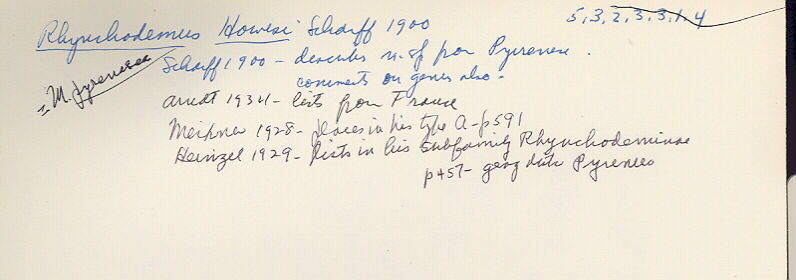 Rhynchodemus Howesi Scharff 1900
5,3,2,3,3,1,4
= M. pyrenaea
Scharff 1900 - describes n. sp from Pyrenees.
comments on genus also.
Arndt 1934 - lists from France
Meixner 1928 - places in his type A - p591
Heinzel 1929 - lists in his subfamily Rhynchodeminae
p457 - geog distr Pyrenees